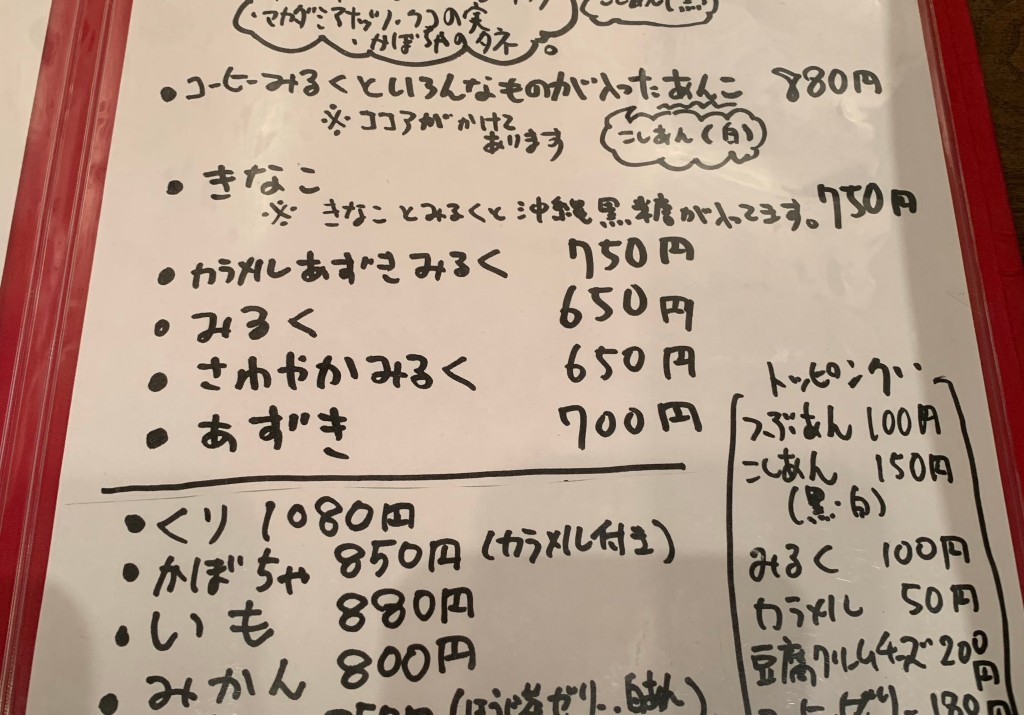 ・マカダミアナッツ・クコの実
・かぼちゃのタネ。
こしあん(黒)
・コーヒーみるくといろんなものが入ったあんこ 880円
※ココアがかけて
あります
こしあん(白)
・きなこ
※きなことみるくと沖縄黒糖が入ってます。750円
・カラメルあずきみるく 750円
・みるく 650円
・さわやかみるく 650円
・あずき 700円
・くり 1080円
・かぼちゃ 850円 (カラメル付き)
・いも 880円
・みかん 800円
(ほうじ茶ゼリー、白あん)
トッピング
つぶあん 100円
こしあん 150円
(黒・白)
みるく 100円
カラメル 50円
豆腐クリームチーズ 200円
180円